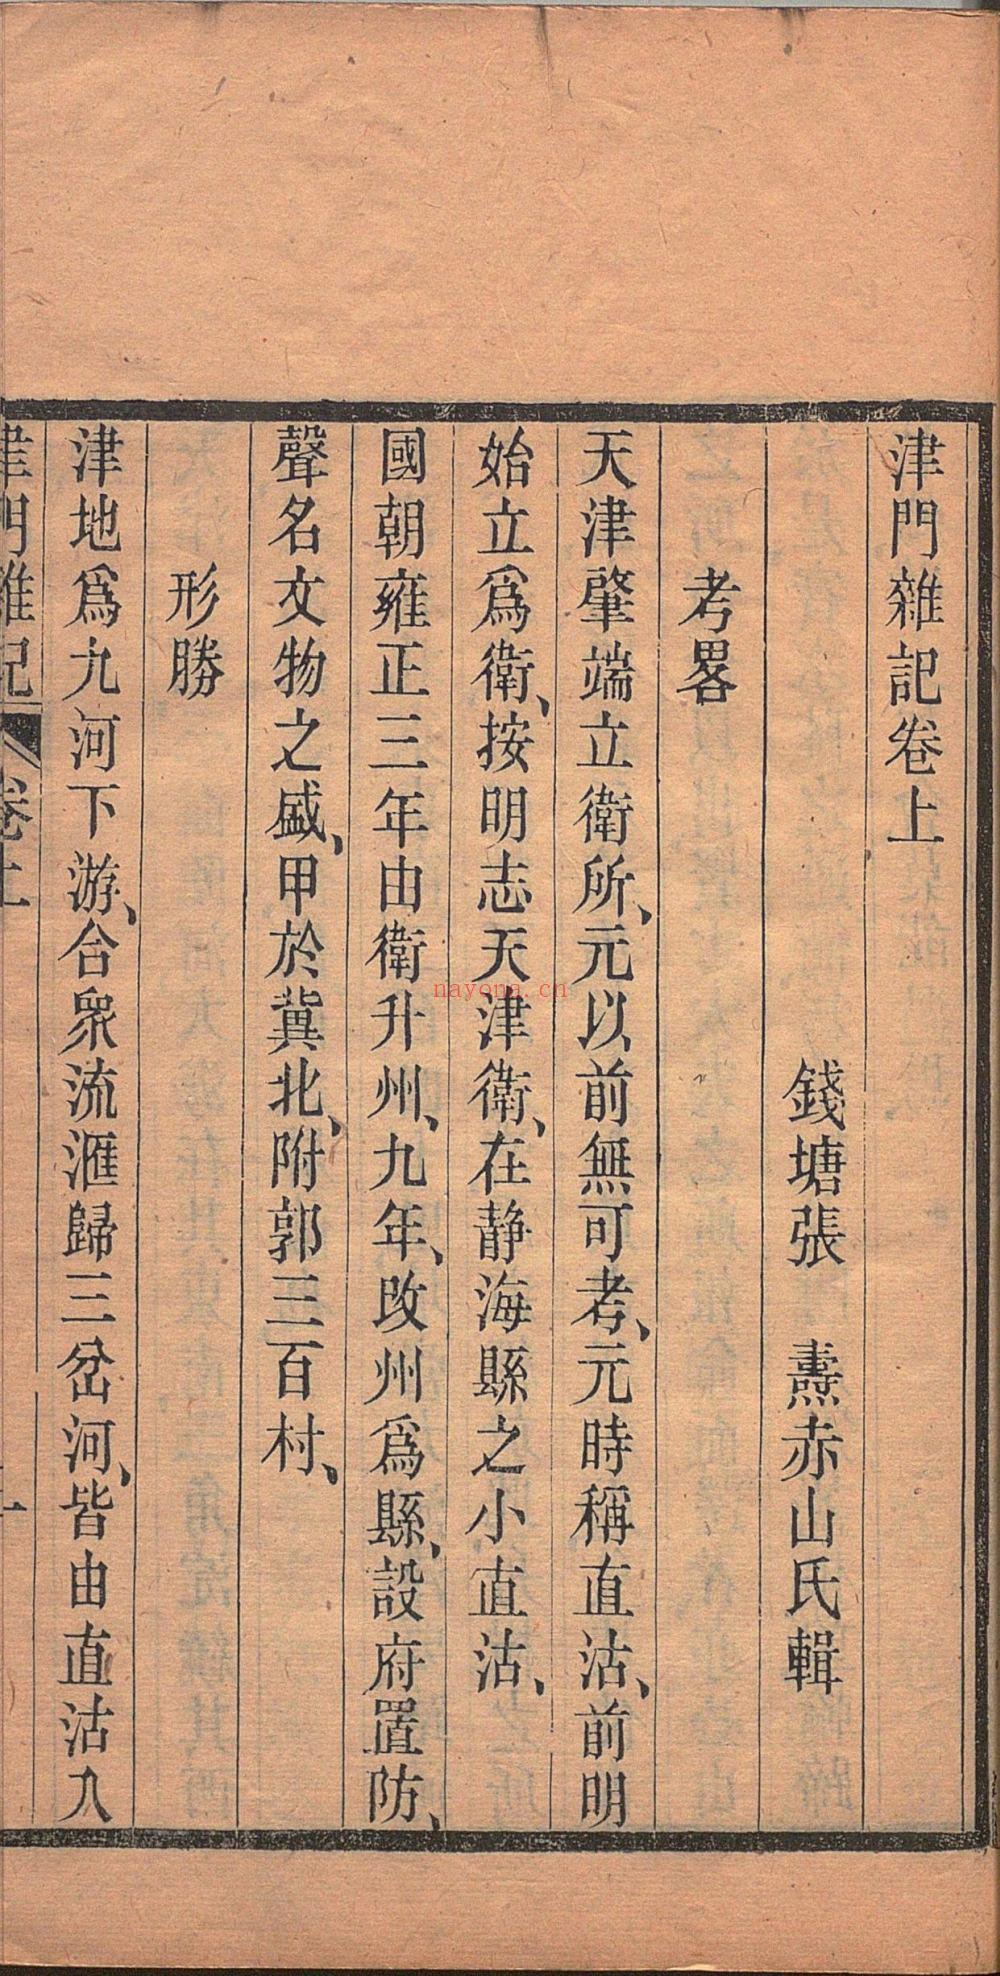 津門雜記卷上
錢塘張　燾赤山氏輯
考畧
天津肇端立衛所、元以前無可考、元時稱直沽、前明
始立爲衛、按明志天津衛、在静海縣之小直沽、
國朝雍正三年由衛升州、九年、改州爲縣、設府置防、
聲名文物之盛、甲於冀北、附郭三百村、
形勝
津地爲九河下游、合衆流滙歸三岔河、皆由直沽入
津門雜記
卷上
一
nayona.cn